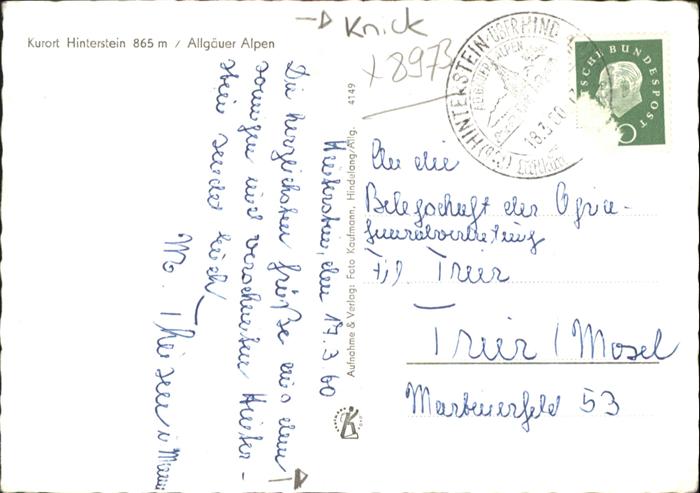 Kurort Hinterstein 865 m / Allgäuer Alpen
→ Knick
x 8973
HINTERSTEIN ÜBER HIND
ALLGÄUER ALPEN
18.3.60
DEUTSCHE BUNDESPOST
Hinterstein, den 17.3.60
Die herzlichsten Grüße aus dem
sonnigen und verschneiten Hinter-
stein sendet Euch
M.
4149
Aufnahme & Verlag: Foto Kaufmann, Hindelang/Allg.
An die
Belegschaft der
Generalvertretung
Trier
Trier / Mosel
Martinerfeld 53